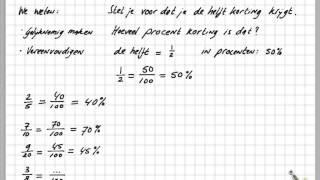 We weten: Stel je voor dat je de helft korting krijgt.
- Gelijknamig maken Hoeveel procent korting is dat?
- Vereenvoudigen de helft = 1/2 in procenten: 50%
1/2 = 50/100 = 50%
2/5 = 40/100 = 40%
7/10 = 70/100 = 70%
9/20 = 45/100 = 45%
3/8 = .../100